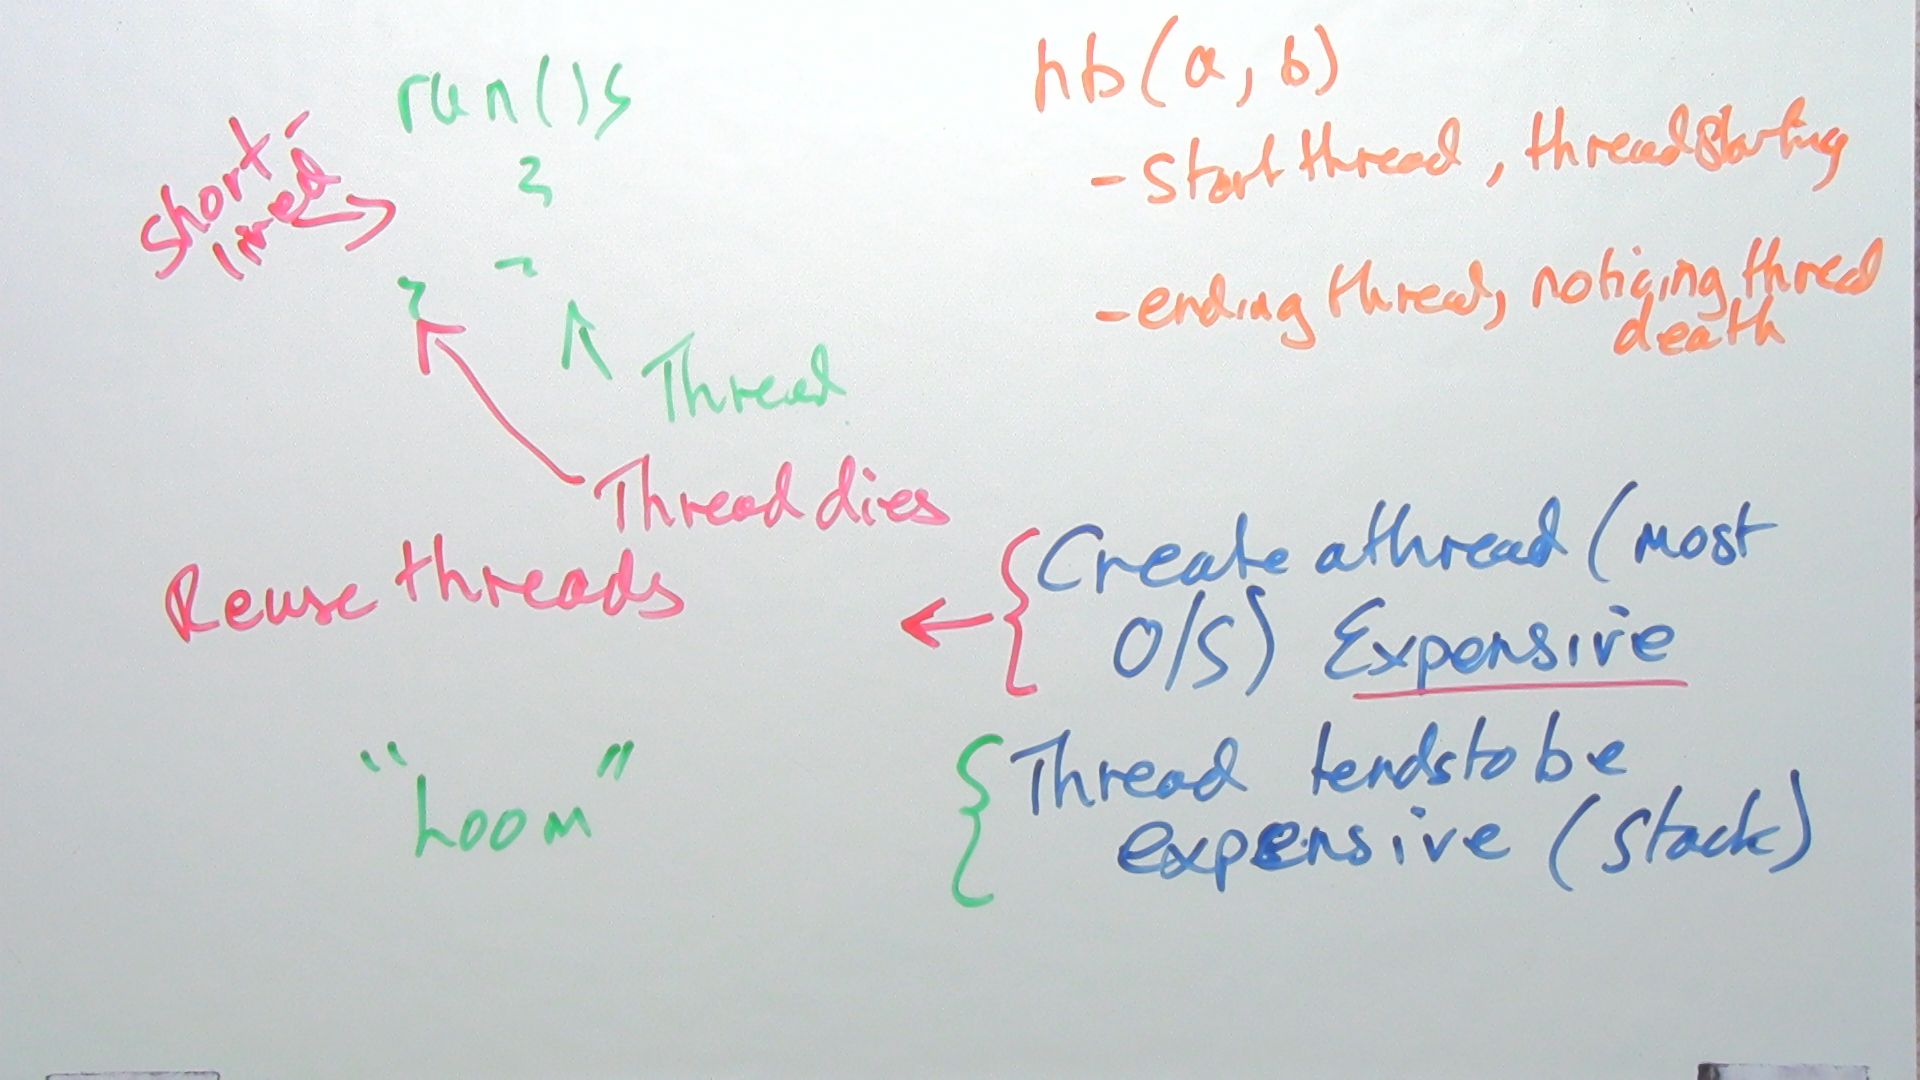 run(){
}
short-
lived
Thread
Thread dies
Reuse threads
"Loom"
hb(a, b)
- Start thread, thread starting
- ending thread, noticing thred
death
{ Create a thread (most
O/S) Expensive
{ Thread tends to be
expensive (stack)